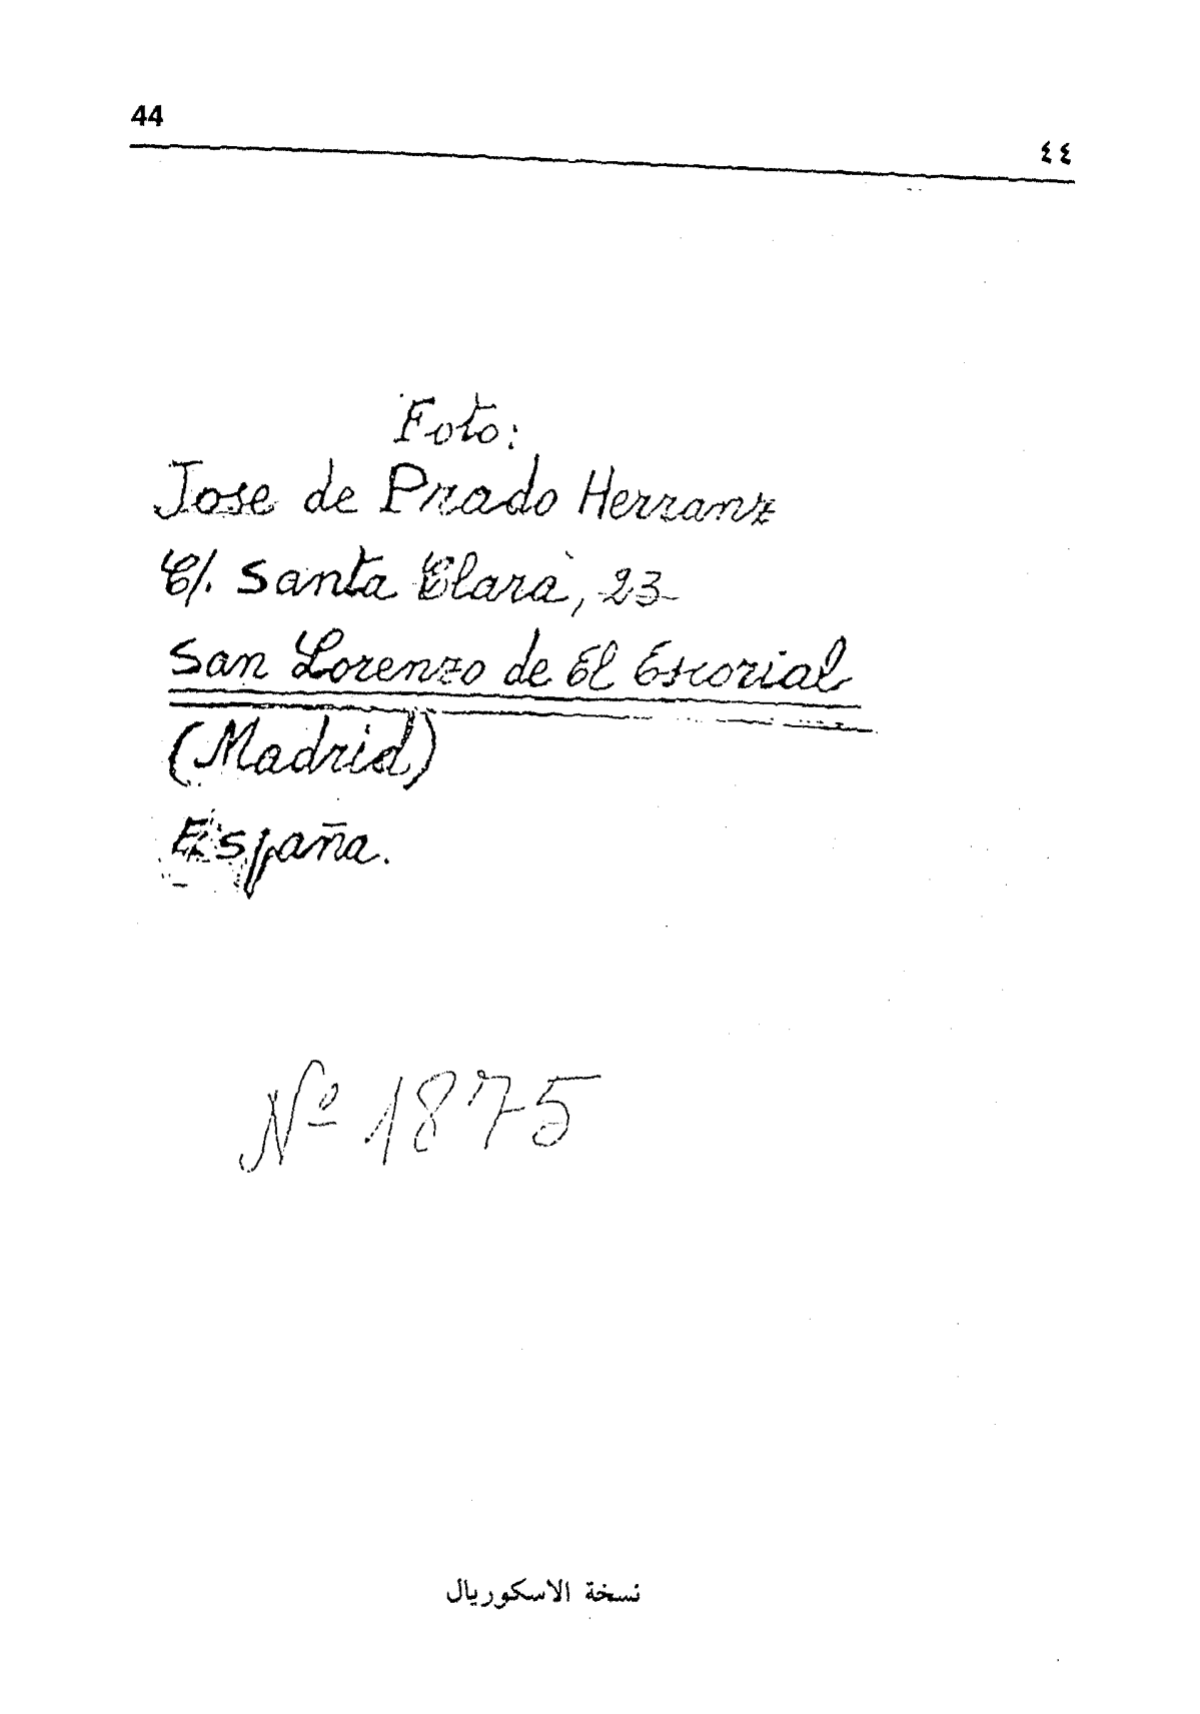 44
٤٤
Foto:
Jose de Prado Herranz
C/. Santa Clara, 23
San Lorenzo de El Escorial
(Madrid)
España.
Nº 1875
نسخة الاسكوريال